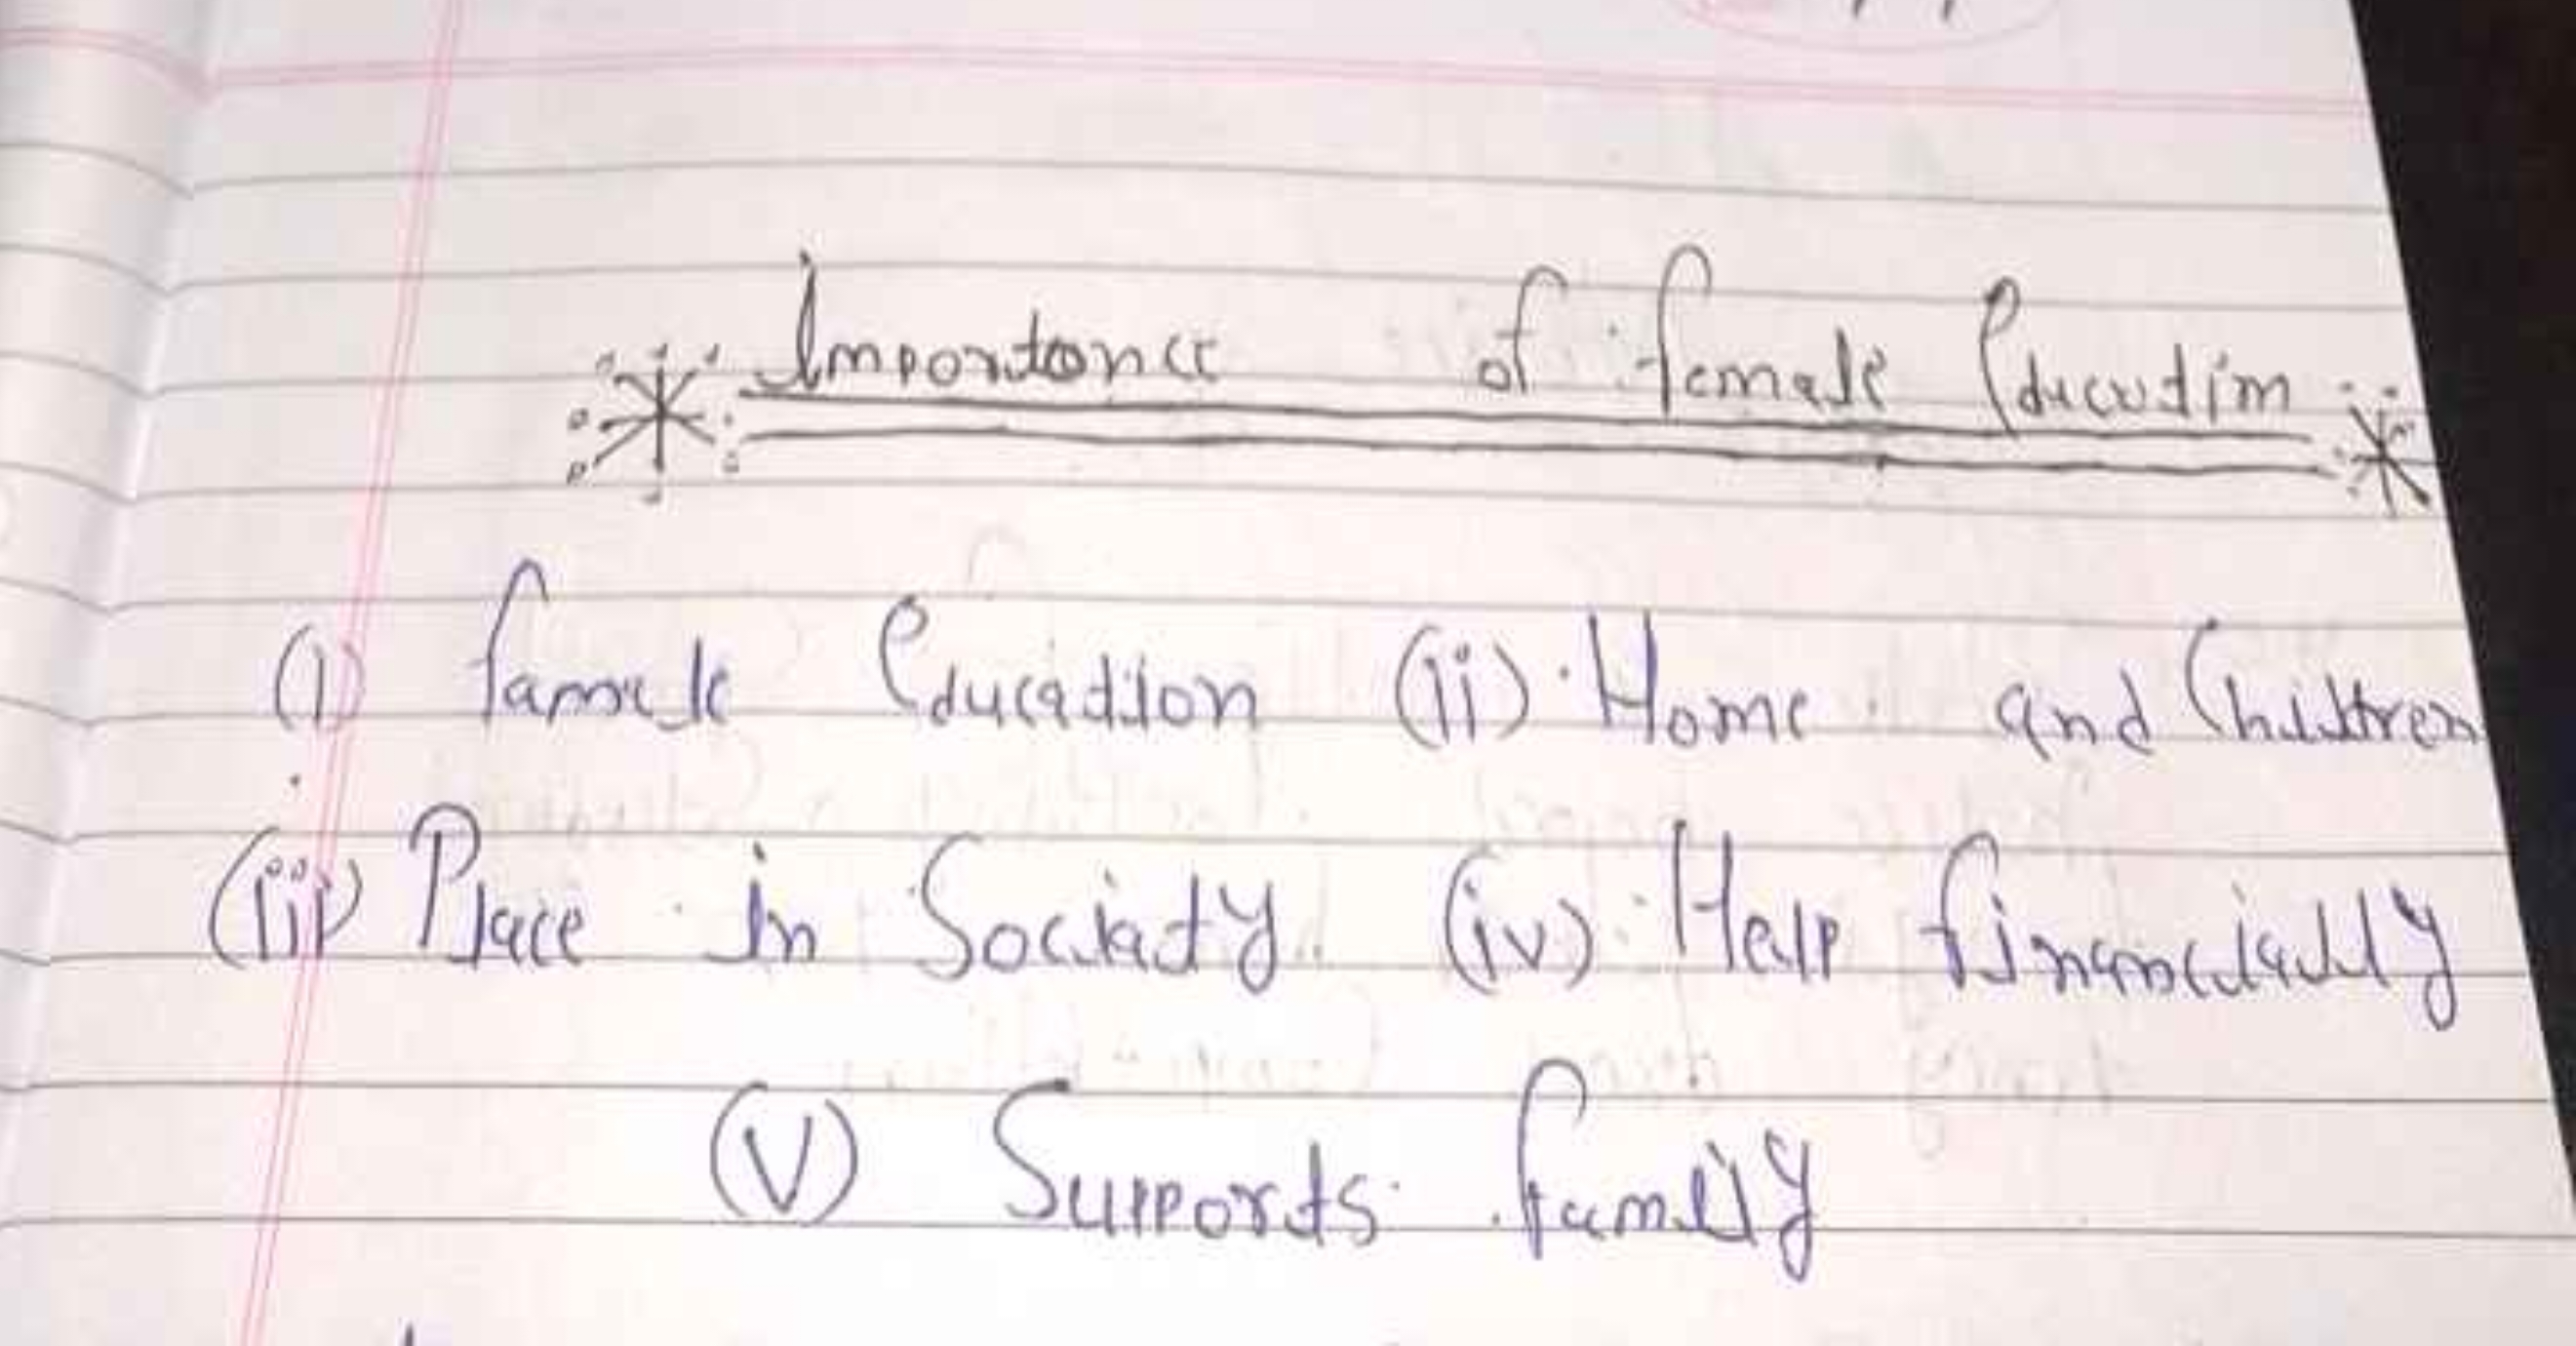 Importance of female Education
(i) famale Education (ii) Home and Children
(iii) Place in Society (iv) Help financially
(V) Supports family